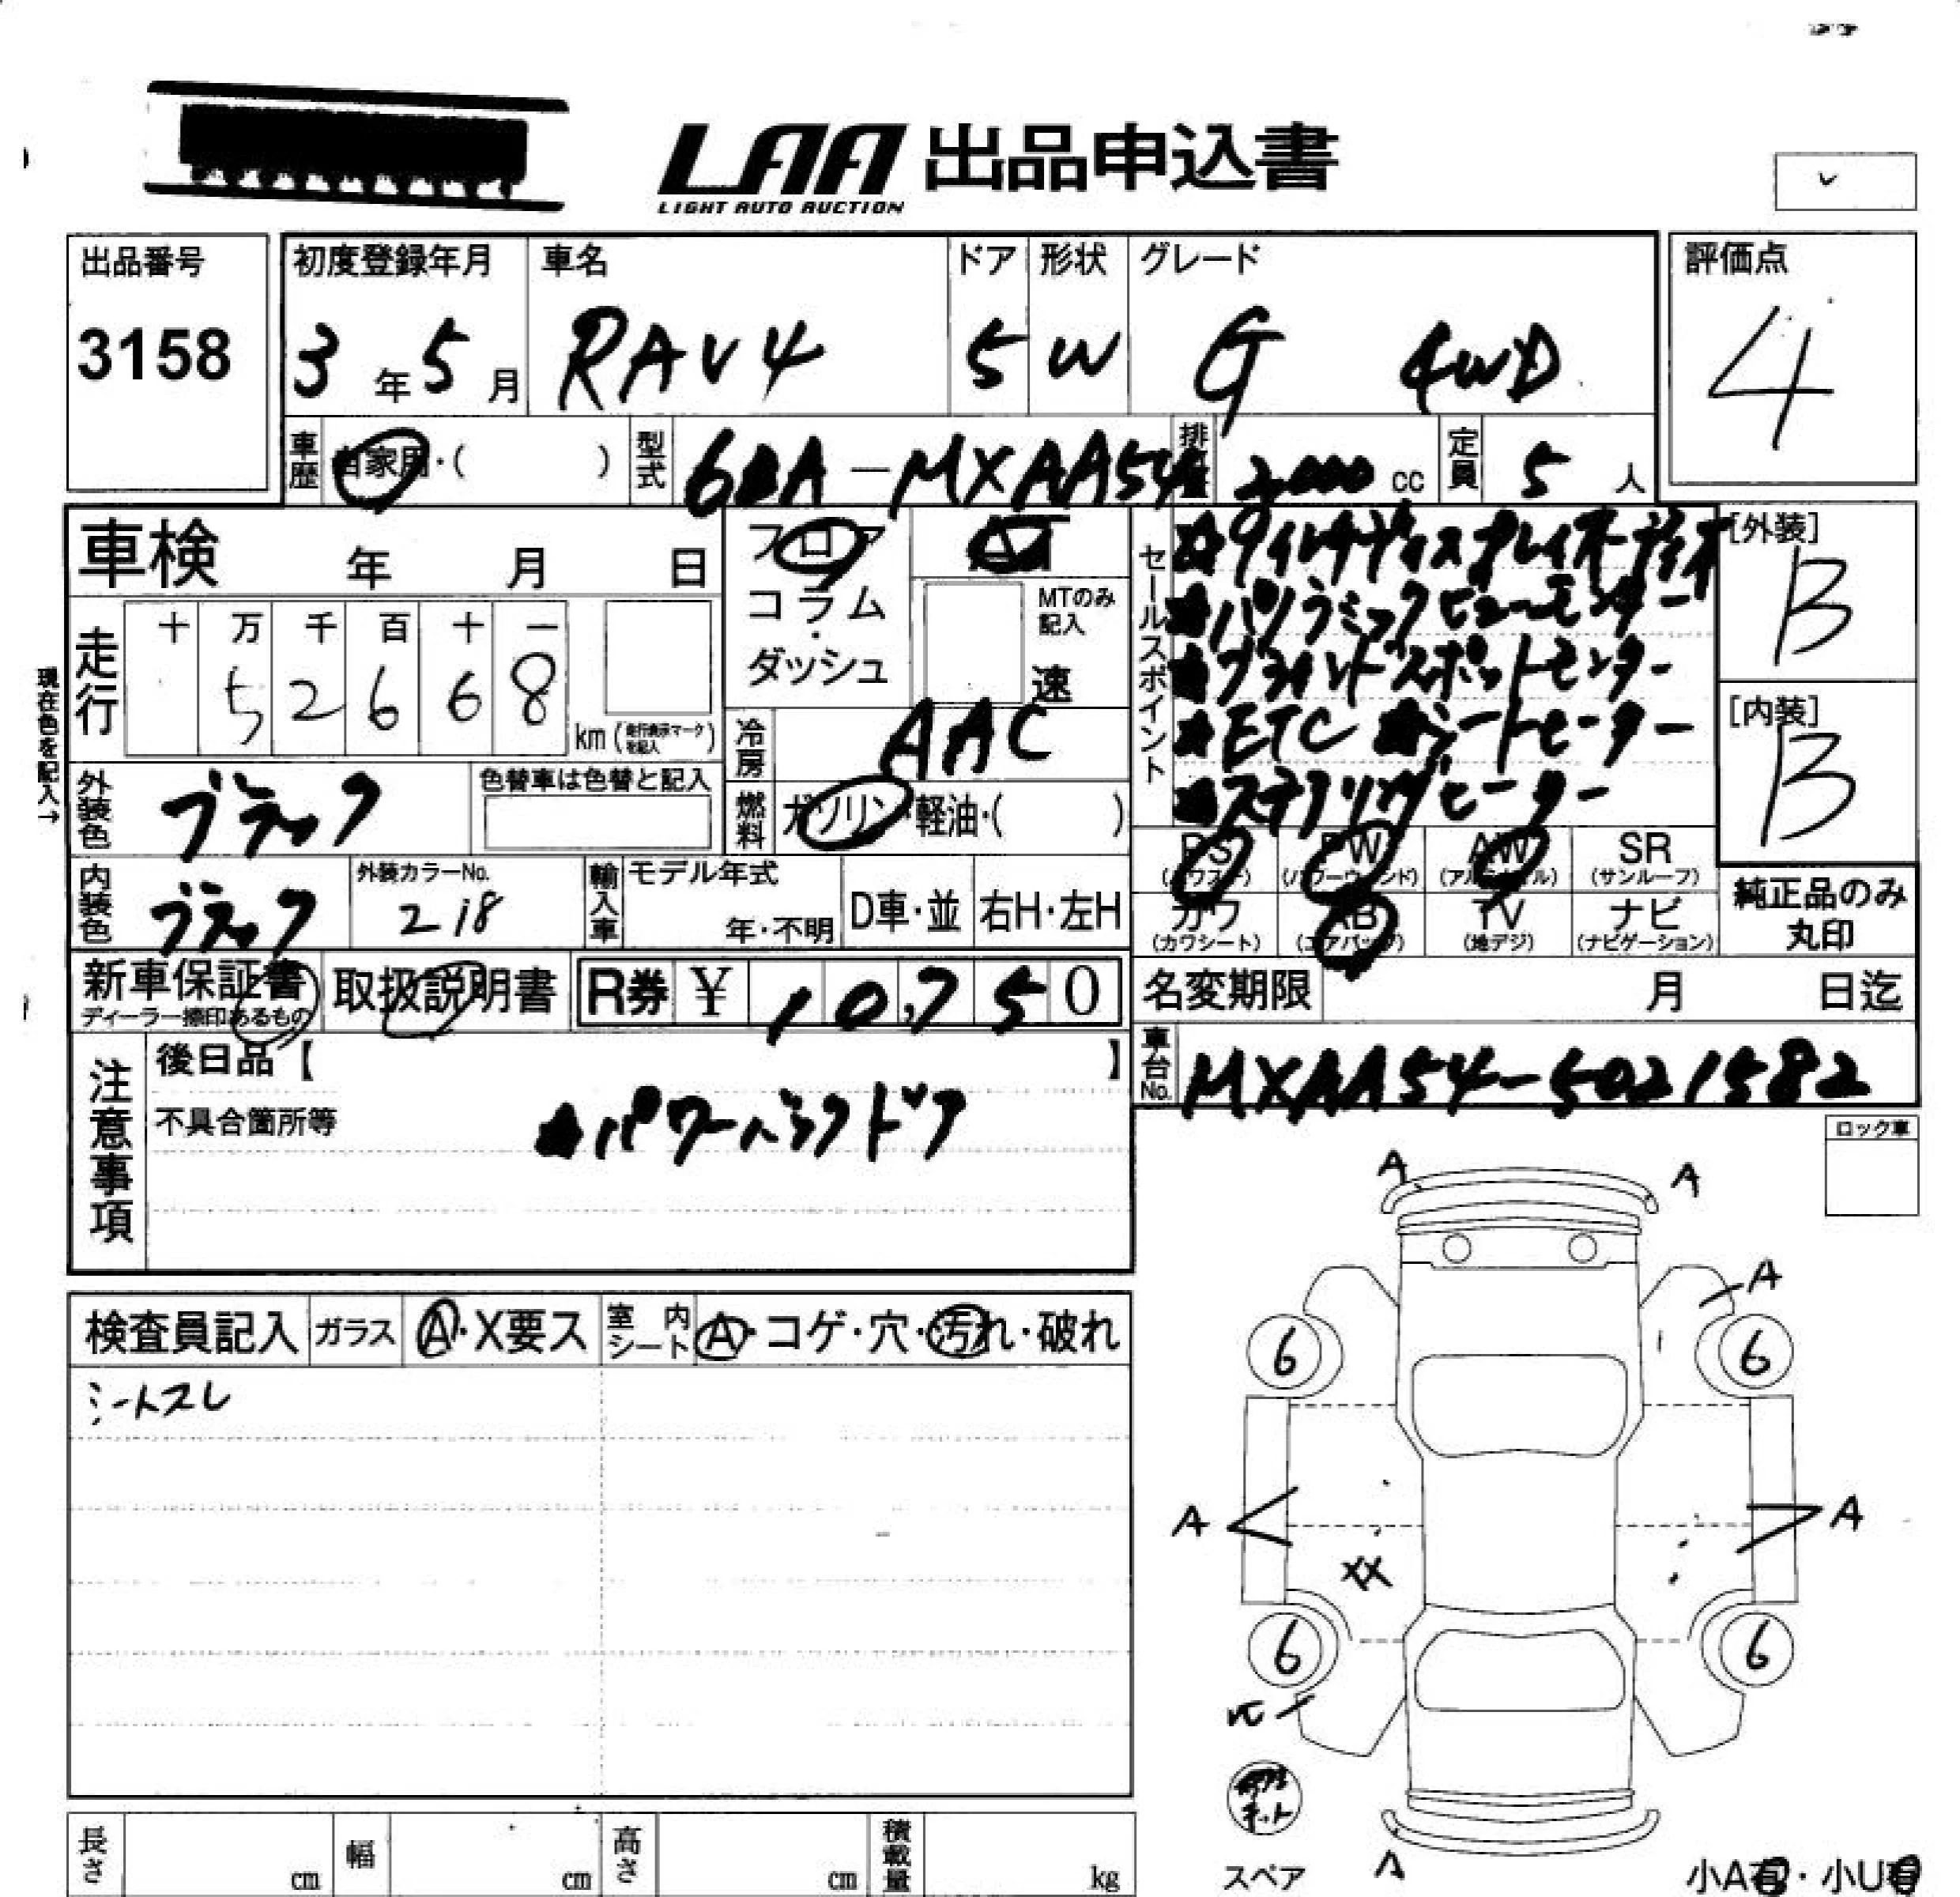 LAA 出品申込書
LIGHT AUTO AUCTION
出品番号
3158
初度登録年月
3年5月
車名
RAV4
ドア
5
形状
W
グレード
G 4WD
評価点
4
車歴
自家用・( )
型式
6BA-MXAA54
排気量
2000cc
定員
5人
車検 年 月 日
走行
十 万 千 百 十 一
5 2 6 6 8
km (走行表示マークを記入)
現在色を記入→
フロア
コラム
・
ダッシュ
AT
MTのみ記入
速
冷房
AAC
燃料
ガソリン・軽油・( )
外装色
ブラック
色替車は色替と記入
内装色
ブラック
外装カラーNo.
218
輸入車
モデル年式
年・不明
D車・並
右H・左H
セールスポイント
★パノラミックビューモニター
★ブラインドスポットモニター
★ETC ★シートヒーター
★ステアリングヒーター
[外装]
B
[内装]
B
PS (パワステ)
PW (パワーウィンド)
AW (アルミホイル)
SR (サンルーフ)
カワ (カワシート)
AB (エアバック)
TV (地デジ)
ナビ (ナビゲーション)
純正品のみ丸印
新車保証書
ディーラー捺印あるもの
取扱説明書
R券 ¥ 10,750
名変期限 月 日迄
車台No.
MXAA54-5021582
注意事項
後日品【 】
不具合箇所等
★パワーバックドア
ロック車
検査員記入
ガラス
A・X要ス
室内シート
A・コゲ・穴・汚れ・破れ
シートスレ
A A
A
6 6
A A
6 6
スペア
A
小A有・小U有
長さ cm
幅 cm
高さ cm
積載量 kg